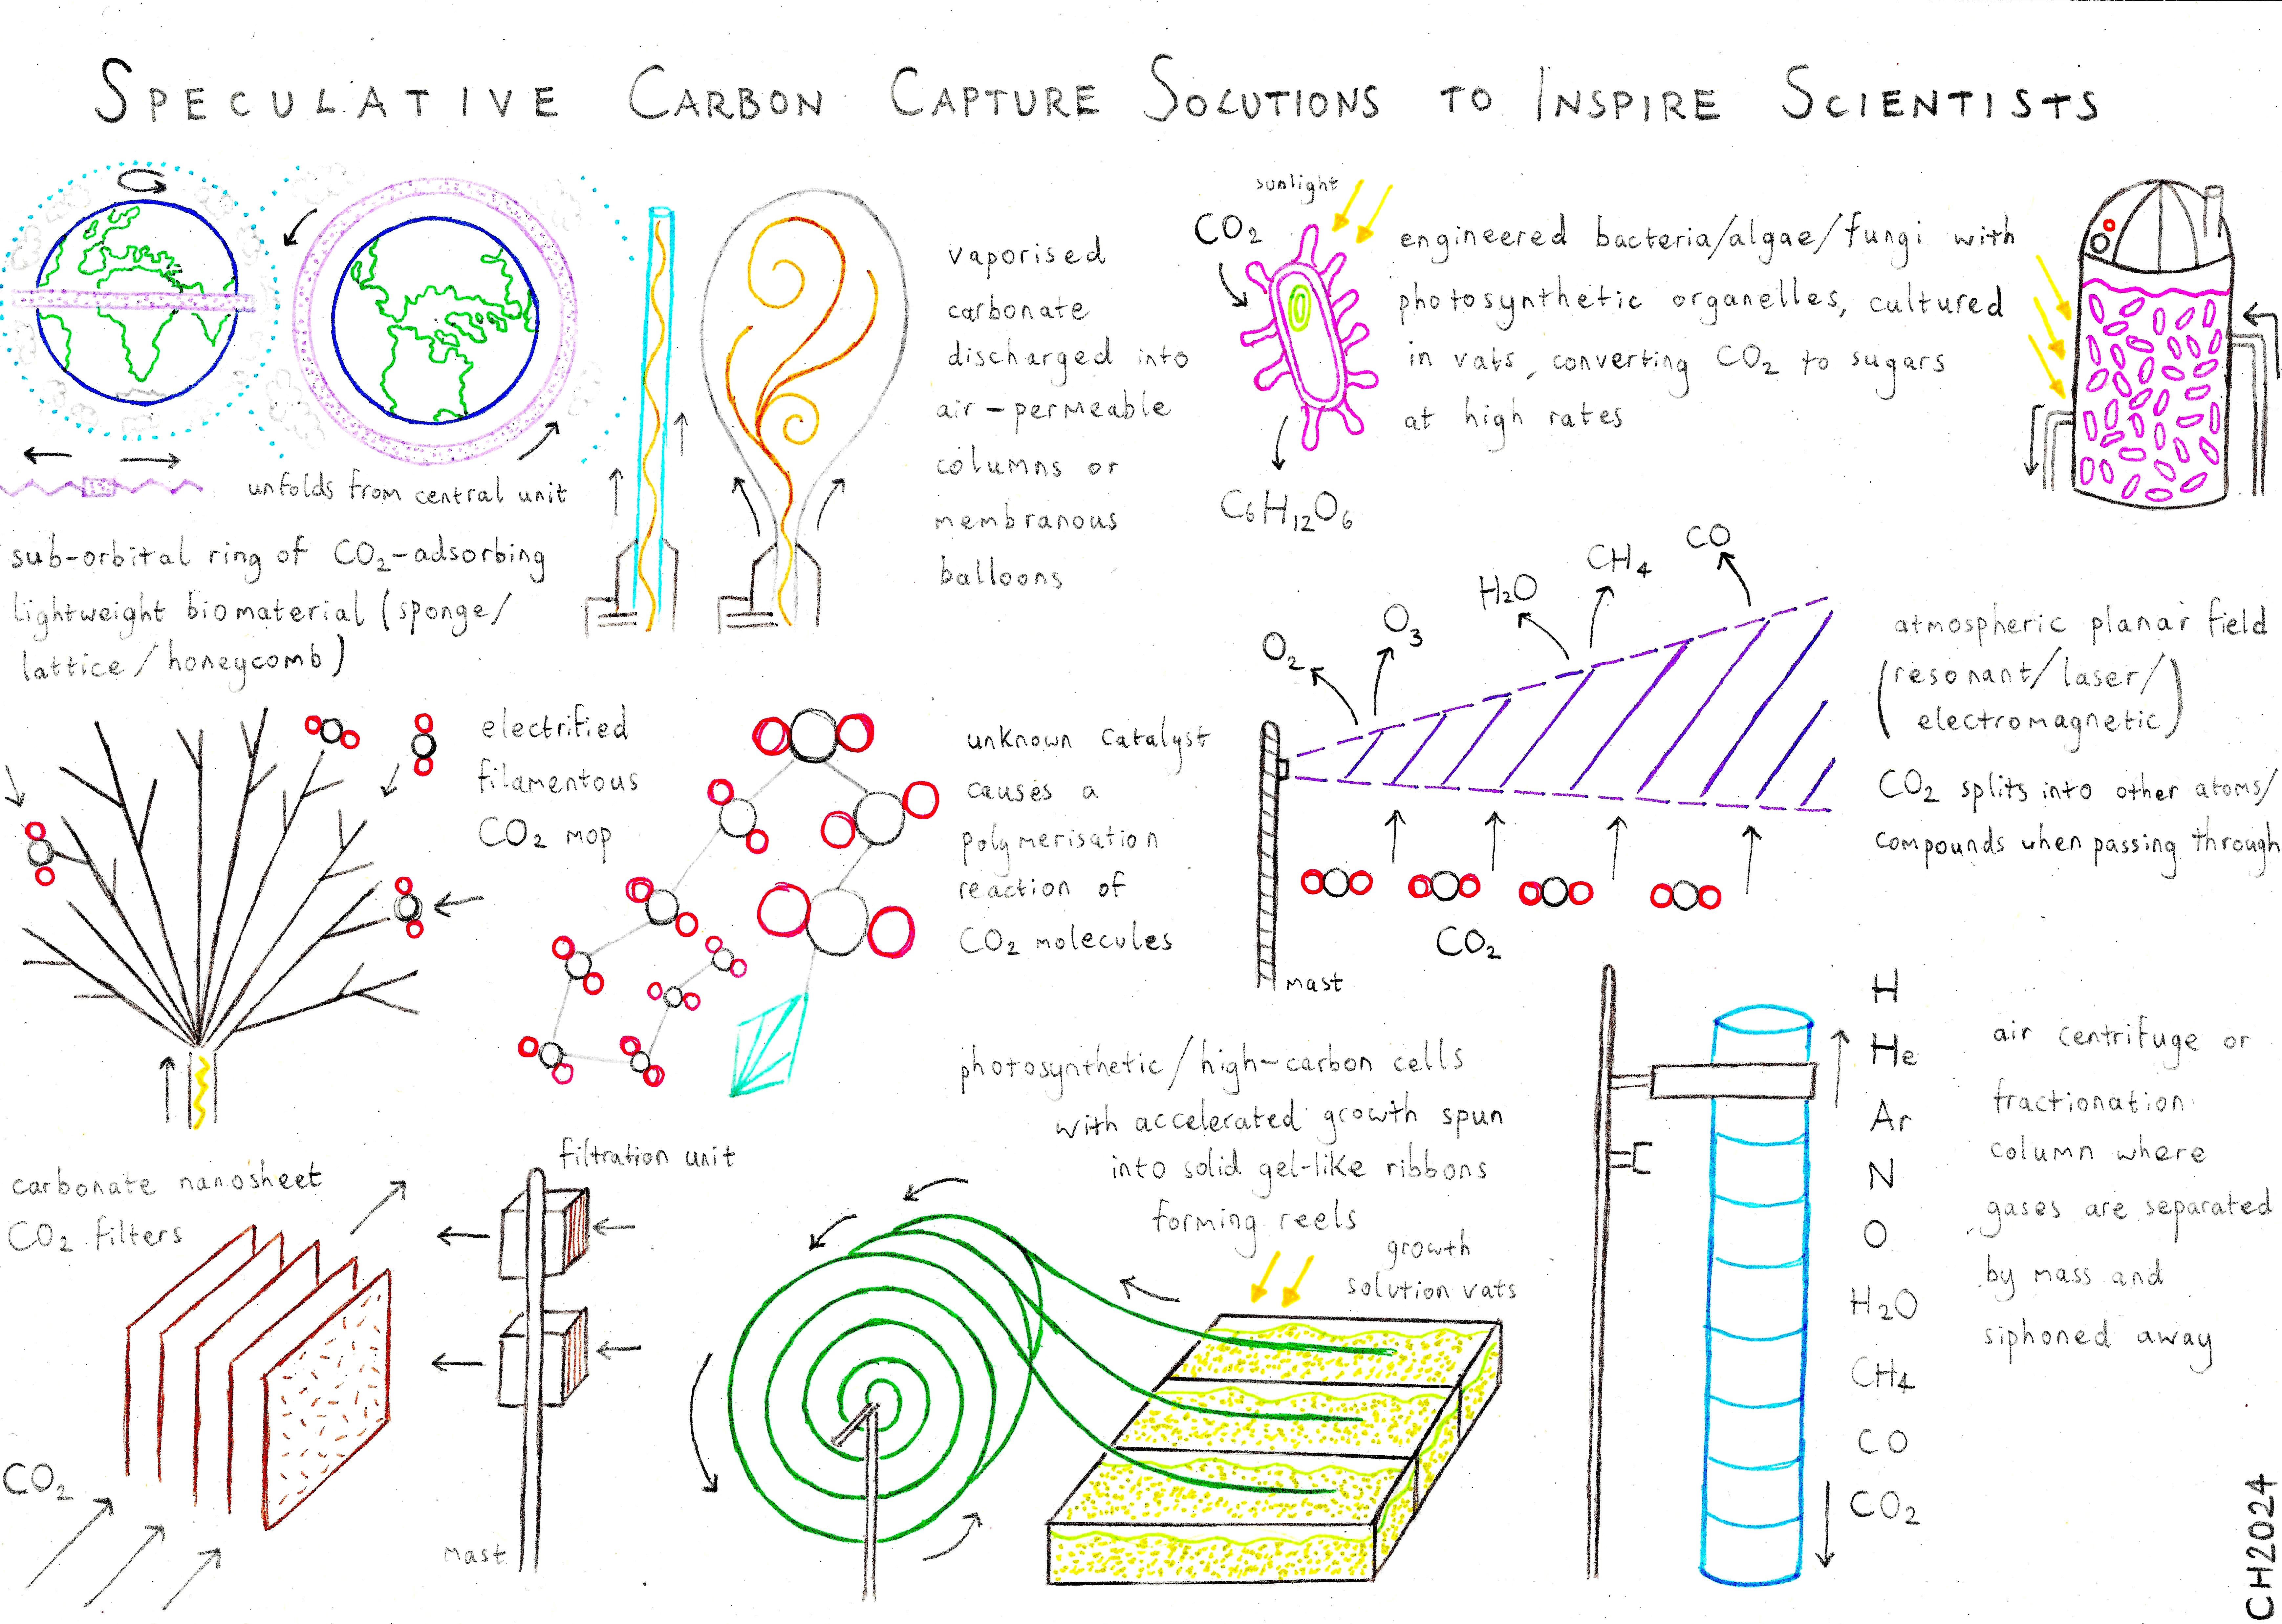 SPECULATIVE CARBON CAPTURE SOLUTIONS TO INSPIRE SCIENTISTS
unfolds from central unit
sub-orbital ring of CO₂-adsorbing
lightweight biomaterial (sponge/
lattice/honeycomb)
vaporised
carbonate
discharged into
air-permeable
columns or
membranous
balloons
sunlight
CO₂
C₆H₁₂O₆
engineered bacteria/algae/fungi with
photosynthetic organelles, cultured
in vats, converting CO₂ to sugars
at high rates
electrified
filamentous
CO₂ mop
unknown catalyst
causes a
polymerisation
reaction of
CO₂ molecules
O₂
O₃
H₂O
CH₄
CO
CO₂
mast
atmospheric planar field
(resonant/laser/
electromagnetic)
CO₂ splits into other atoms/
compounds when passing through
carbonate nanosheet
CO₂ filters
CO₂
filtration unit
mast
photosynthetic/high-carbon cells
with accelerated growth spun
into solid gel-like ribbons
forming reels
growth
solution vats
H
He
Ar
N
O
H₂O
CH₄
CO
CO₂
air centrifuge or
fractionation
column where
gases are separated
by mass and
siphoned away
CH2024